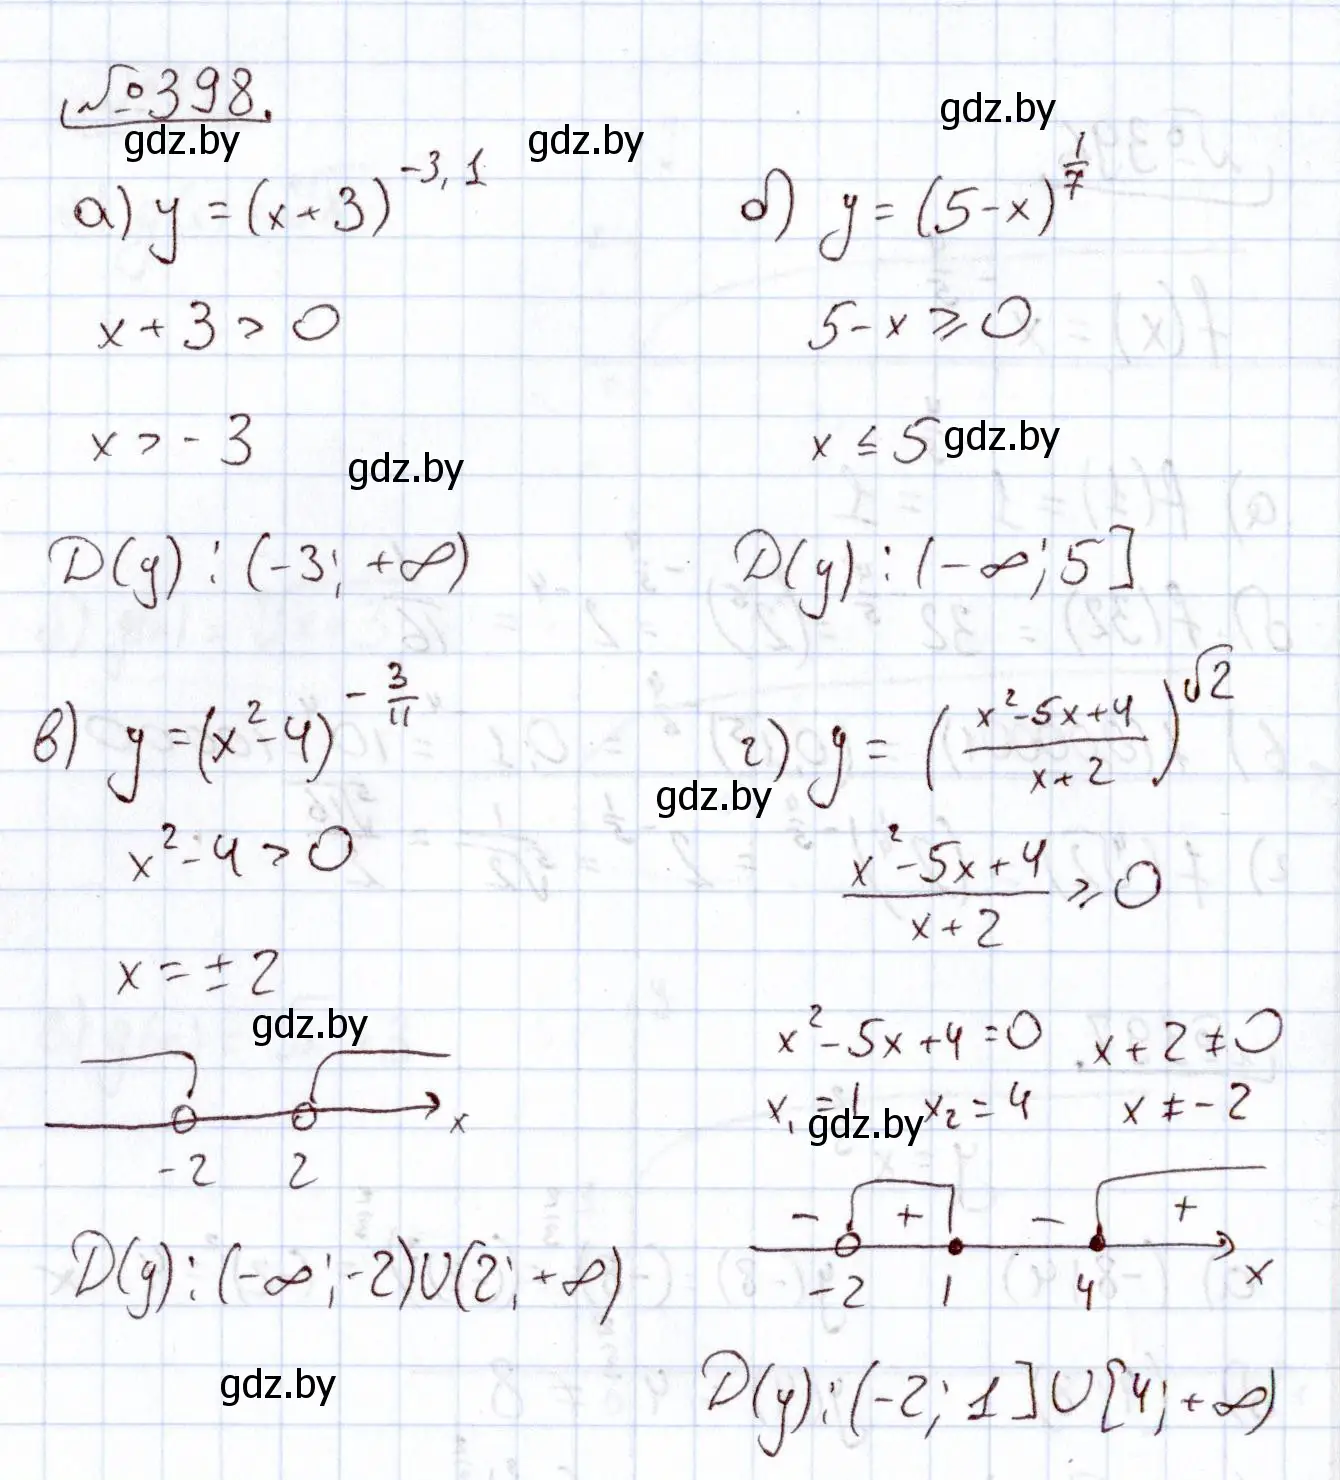 №398.
gdz.by gdz.by gdz.by
а) y = (x+3)^{-3,1}
x+3 > 0
x > -3
gdz.by
D(y): (-3; +∞)
б) y = (5-x)^{1/7}
5-x ≥ 0
x ≤ 5
gdz.by
D(y): (-∞; 5]
в) y = (x²-4)^{-3/11}
x²-4 > 0
x = ±2
gdz.by
-2 2 x
D(y): (-∞; -2)∪(2; +∞)
gdz.by
г) y = ((x²-5x+4)/(x+2))^{√2}
gdz.by
(x²-5x+4)/(x+2) ≥ 0
x²-5x+4=0 x+2≠0
x₁=1 x₂=4 x≠-2
gdz.by
- + - +
-2 1 4 x
D(y): (-2; 1]∪[4; +∞)